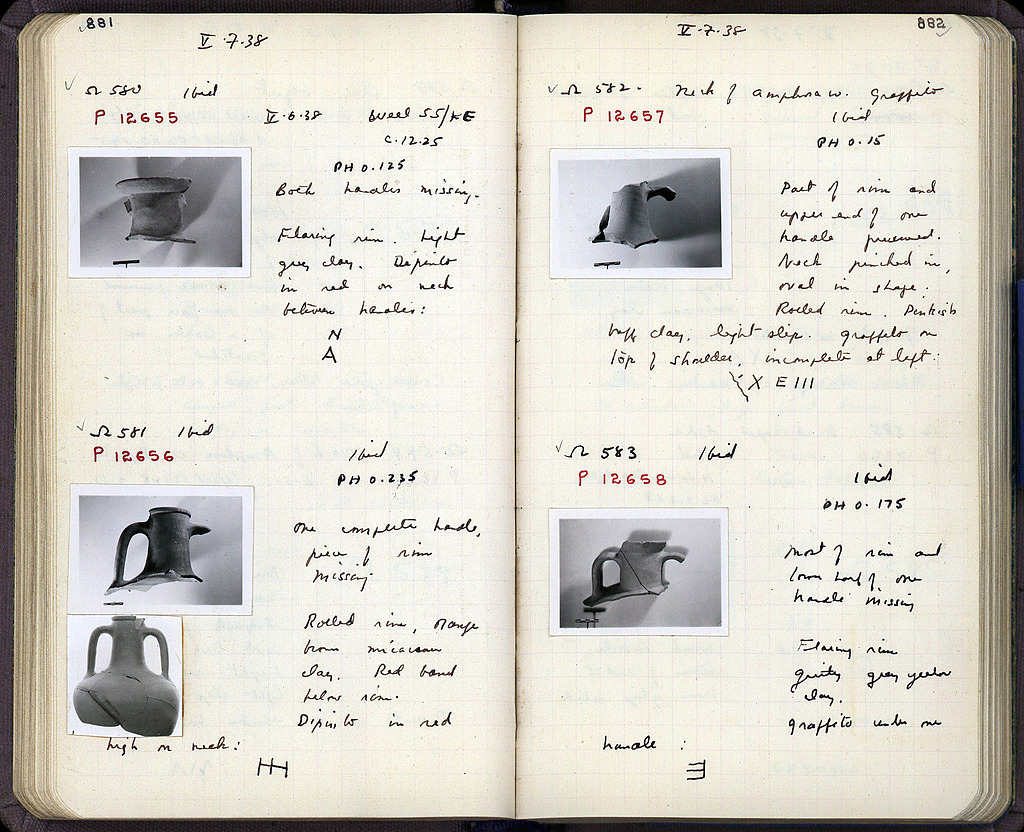 881
V·7·38
Ω 580 Ibid
P 12655 V·6·38 Well 55/ΚΕ
C. 12.25
PH 0.125
Both handles missing.
Flaring rim. Light
grey clay. Dipinto
in red on neck
between handles:
N
A
Ω 581 Ibid
P 12656 Ibid
PH 0.235
One complete handle,
piece of rim
missing.
Rolled rim, orange
brown micaceous
clay. Red band
below rim.
Dipinto in red
high on neck:
882
V·7·38
Ω 582. Neck of amphora w. Graffito
P 12657 Ibid
PH 0.15
Part of rim and
upper end of one
handle preserved.
Neck pinched in,
oval in shape.
Rolled rim. Pinkish
buff clay, light slip. Graffito on
top of shoulder, incomplete at left:
X E III
Ω 583 Ibid
P 12658 Ibid
PH 0.175
Most of rim and
lower half of one
handle missing
Flaring rim
gritty grey yellow
clay.
graffito under one
handle :